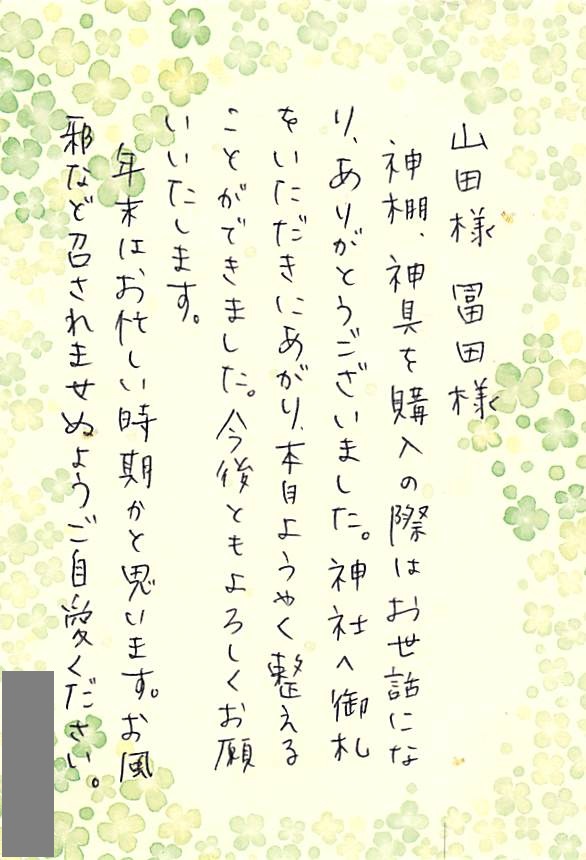 山田様　冨田様
神棚、神具を購入の際はお世話にな
り、ありがとうございました。神社へ御札
をいただきにあがり、本日ようやく整える
ことができました。今後ともよろしくお願
いいたします。
年末はお忙しい時期かと思います。お風
邪など召されませぬようご自愛ください。